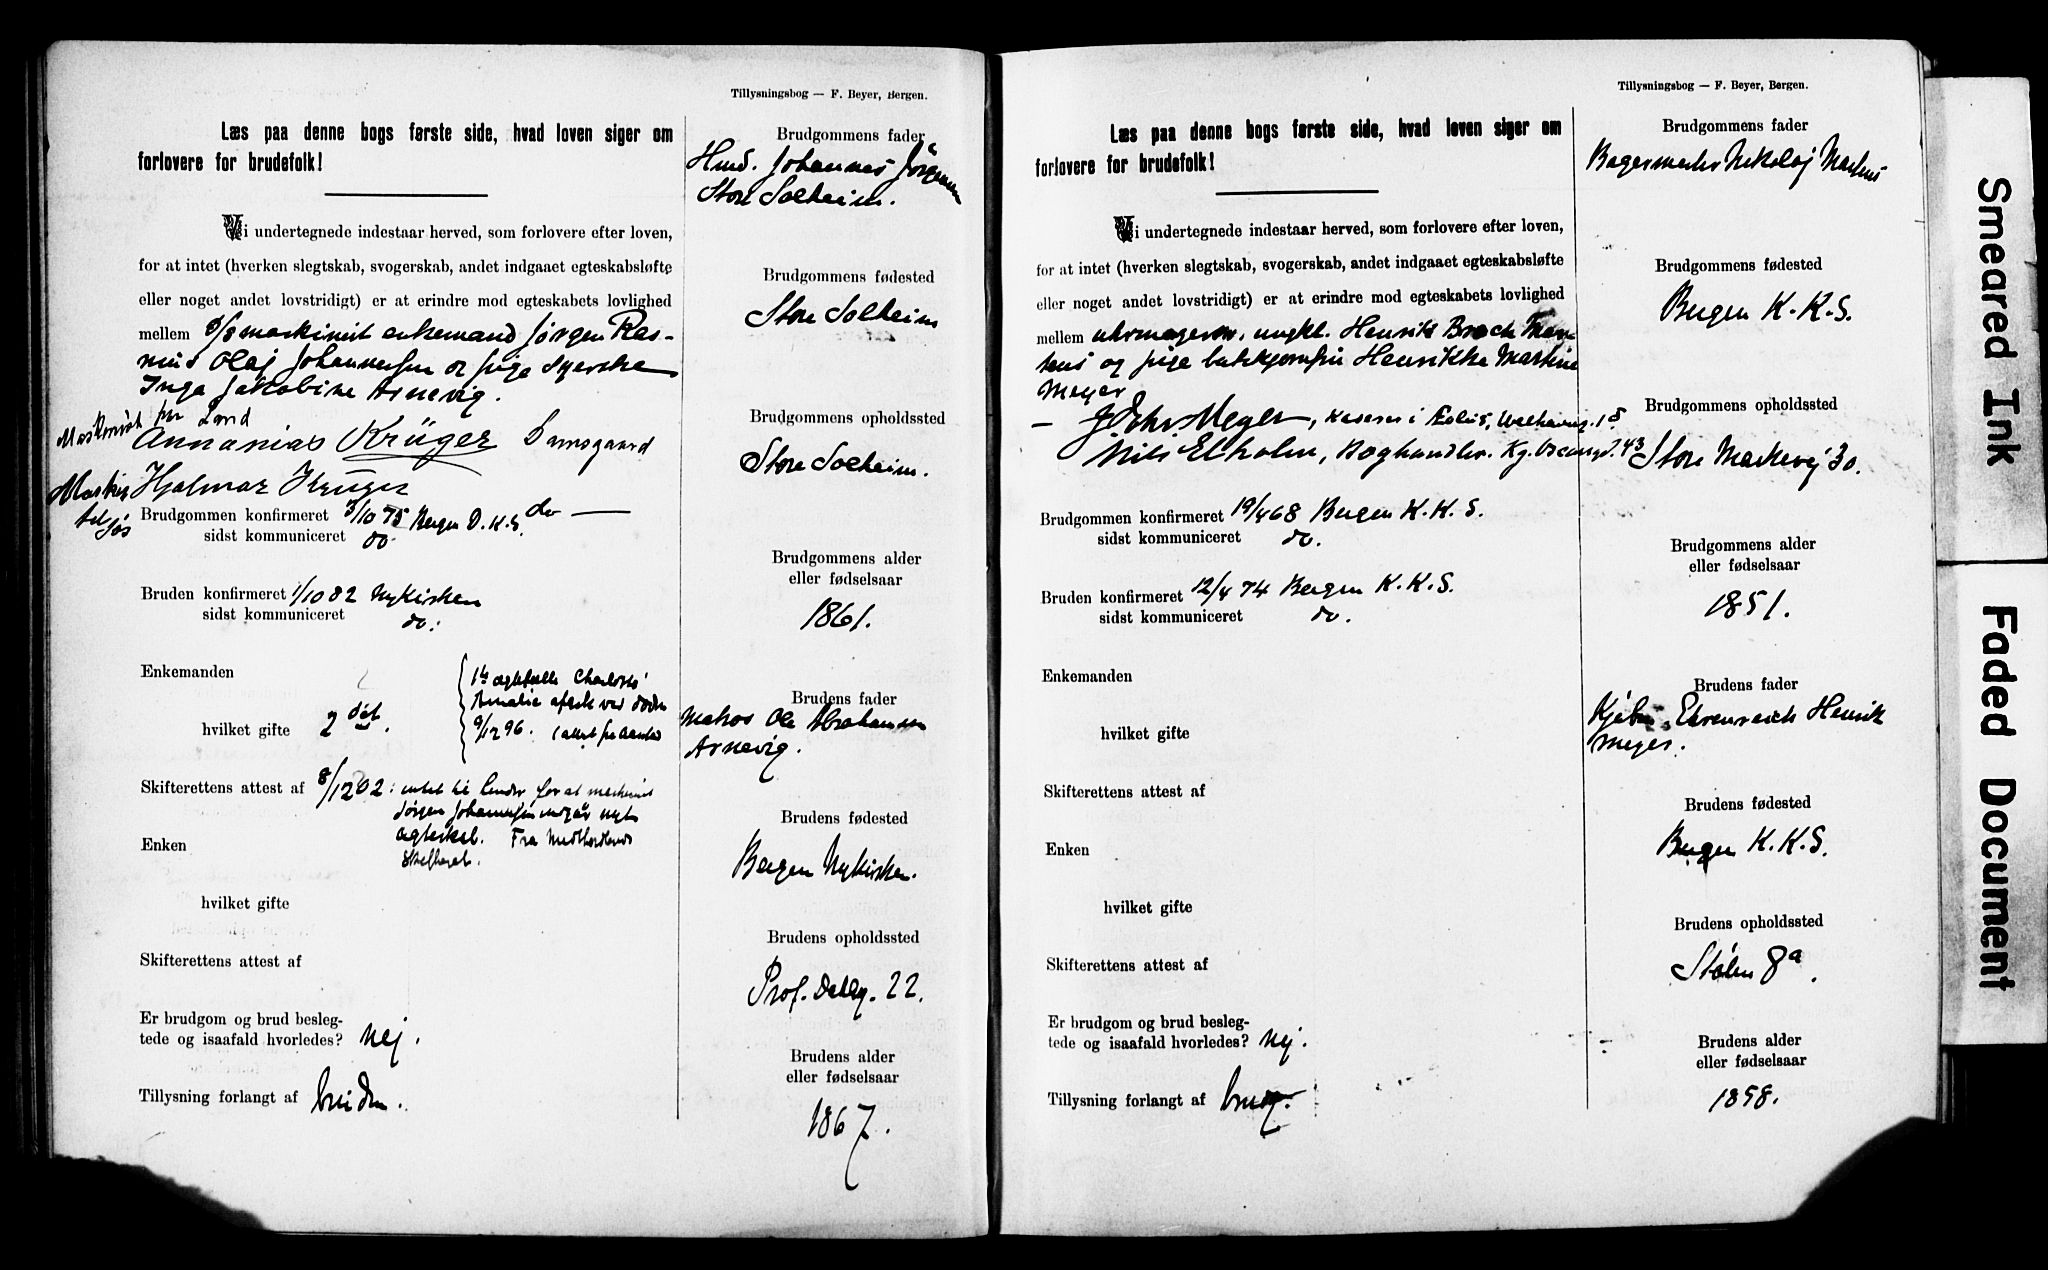 Tillysningsbog — F. Beyer, Bergen.
Læs paa denne bogs første side, hvad loven siger om
forlovere for brudefolk!
Vi undertegnede indestaar herved, som forlovere efter loven,
for at intet (hverken slegtskab, svogerskab, andet indgaaet egteskabsløfte
eller noget andet lovstridigt) er at erindre mod egteskabets lovlighed
mellem maskinist enkemand Jørgen Ras-
mus Olaj Johannessen og pige syerske
Inga Jakobine Arnevig.
Maskinist paa Land
Annanias Krüger Damsgaard
Hjalmar Krüger
tilsjøs
do —
Brudgommen konfirmeret 3/10 75 Bergen D.K.S.
sidst kommuniceret do.
Bruden konfirmeret 1/10 82 Nykirken
sidst kommuniceret do.
Enkemanden
hvilket gifte 2det.
1ste ægtefælle Charlotte
Amalie afgik ved døden
9/12 96.
Skifterettens attest af 8/12 02: intet til hinder for at maskinist
Jørgen Johannessen indgår nyt
ægteskab. Fra Midthordlands
skifteret.
Enken
hvilket gifte
Skifterettens attest af
Er brudgom og brud besleg-
tede og isaafald hvorledes? Nej.
Tillysning forlangt af bruden.
Brudgommens fader
Hmd. Johannes Jörgensen
Store Solheim.
Brudgommens fødested
Store Solheim
Brudgommens opholdssted
Store Solheim.
Brudgommens alder
eller fødselsaar
1861.
Brudens fader
Matros Ole Abrahamsen
Arnevig.
Brudens fødested
Bergen Nykirken.
Brudens opholdssted
Prof. Dahlg. 22.
Brudens alder
eller fødselsaar
1867.
Tillysningsbog — F. Beyer, Bergen.
Læs paa denne bogs første side, hvad loven siger om
forlovere for brudefolk!
Vi undertegnede indestaar herved, som forlovere efter loven,
for at intet (hverken slegtskab, svogerskab, andet indgaaet egteskabsløfte
eller noget andet lovstridigt) er at erindre mod egteskabets lovlighed
mellem uhrmager, ungkl. Henrik Broch Mar-
tens og pige Henrikke Martine
Meyer
Meyer, kaserer i
Nils Elholm, Boghandler. Kg. Oscarsgd. 43
Brudgommen konfirmeret 19/4 68 Bergen K.K.S.
sidst kommuniceret do.
Bruden konfirmeret 12/4 74 Bergen K.K.S.
sidst kommuniceret do.
Enkemanden
hvilket gifte
Skifterettens attest af
Enken
hvilket gifte
Skifterettens attest af
Er brudgom og brud besleg-
tede og isaafald hvorledes? Nej.
Tillysning forlangt af brudg.
Brudgommens fader
Bagermester Nikolaj Martens
Brudgommens fødested
Bergen K.K.S.
Brudgommens opholdssted
Store Markevej 30.
Brudgommens alder
eller fødselsaar
1851.
Brudens fader
Kjøbm. Ehrenreich Henrik
Meyer.
Brudens fødested
Bergen K.K.S.
Brudens opholdssted
Stølen 8a.
Brudens alder
eller fødselsaar
1858.
Smeared Ink
Faded Document